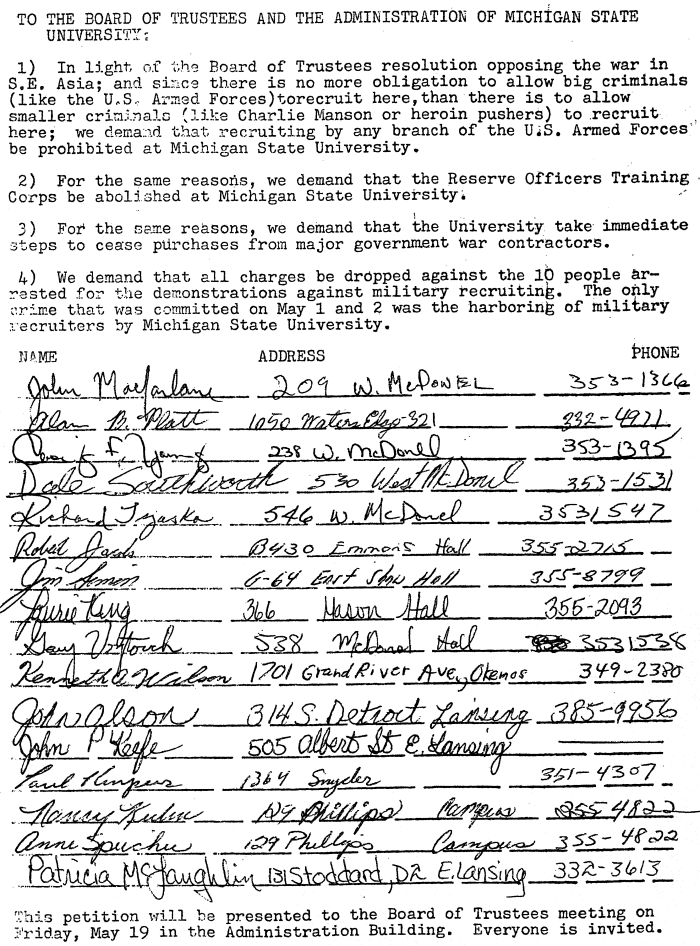 TO THE BOARD OF TRUSTEES AND THE ADMINISTRATION OF MICHIGAN STATE
UNIVERSITY:
1) In light of the Board of Trustees resolution opposing the war in
S.E. Asia; and since there is no more obligation to allow big criminals
(like the U.S. Armed Forces)torecruit here,than there is to allow
smaller criminals (like Charlie Manson or heroin pushers) to recruit
here; we demand that recruiting by any branch of the U.S. Armed Forces
be prohibited at Michigan State University.
2) For the same reasons, we demand that the Reserve Officers Training
Corps be abolished at Michigan State University.
3) For the same reasons, we demand that the University take immediate
steps to cease purchases from major government war contractors.
4) We demand that all charges be dropped against the 10 people ar-
rested for the demonstrations against military recruiting. The only
crime that was committed on May 1 and 2 was the harboring of military
recruiters by Michigan State University.
NAME ADDRESS PHONE
John Macfarlane 209 W. McDowEL 353-1366
Alan B. Platt 1050 Waters Edge-321 332-4971
F. Young 238 W. McDonel 353-1395
Dale Southworth 530 West McDonel 353-1531
Richard Tyaska 546 W. McDonel 3531547
Robert B430 Emmons Hall 355-2715
Jim G-64 East Shaw Hall 355-8799
Laurie King 366 Mason Hall 355-2093
Gary 538 McDonel Hall 3531538
Kenneth A Wilson 1701 Grand River Ave, Okemos 349-2380
John Olson 314 S. Detroit Lansing 385-9956
John P Keefe 505 Albert St E. Lansing
Paul 1364 Snyder 351-4307
Nancy Kuhn 129 Phillips Campus 355-4822
Anne 129 Phillips Campus 355-4822
Patricia McLaughlin 131 Stoddard, D2 E. Lansing 332-3613
This petition will be presented to the Board of Trustees meeting on
Friday, May 19 in the Administration Building. Everyone is invited.